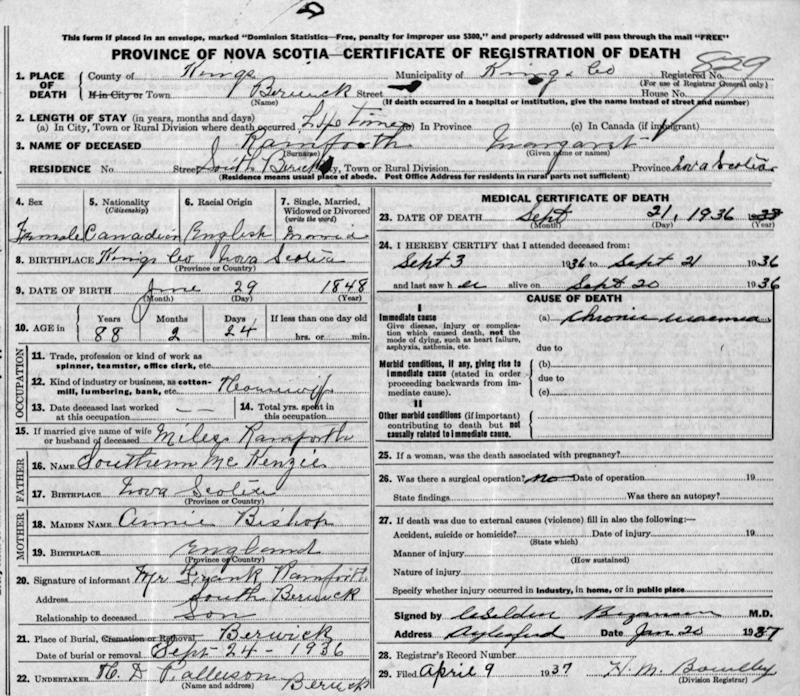 This form if placed in an envelope, marked "Dominion Statistics—Free, penalty for improper use $300," and properly addressed will pass through the mail "FREE"
PROVINCE OF NOVA SCOTIA—CERTIFICATE OF REGISTRATION OF DEATH
1. PLACE OF DEATH County of Kings Municipality of Kings Co Registered No. 829
(For use of Registrar General only)
If in City or Town Berwick Street House No.
(Name) (If death occurred in a hospital or institution, give the name instead of street and number)
2. LENGTH OF STAY (in years, months and days)
(a) In City, Town or Rural Division where death occurred Life time (b) In Province (c) In Canada (if immigrant)
3. NAME OF DECEASED Ramforth Margaret
(Surname) (Given name or names)
RESIDENCE No Street South Berwick City, Town or Rural Division Province Nova Scotia
(Residence means usual place of abode. Post Office Address for residents in rural parts not sufficient)
4. Sex 5. Nationality (Citizenship) 6. Racial Origin 7. Single, Married, Widowed or Divorced (write the word)
Female Canadian English Married
8. BIRTHPLACE Kings Co Nova Scotia
(Province or Country)
9. DATE OF BIRTH June 29 1848
(Month) (Day) (Year)
10. AGE in Years Months Days If less than one day old
88 2 24 hrs. or min.
OCCUPATION
11. Trade, profession or kind of work as spinner, teamster, office clerk, etc.
12. Kind of industry or business, as cotton-mill, lumbering, bank, etc. Housewife
13. Date deceased last worked at this occupation — — 14. Total yrs. spent in this occupation
15. If married give name of wife or husband of deceased Miles Ramforth
FATHER
16. NAME Southern McKenzie
17. BIRTHPLACE Nova Scotia
(Province or Country)
MOTHER
18. MAIDEN NAME Annie Bishop
19. BIRTHPLACE England
(Province or Country)
20. Signature of informant Mr Frank Ramforth
Address South Berwick
Relationship to deceased Son
21. Place of Burial, Cremation or Removal Berwick
Date of burial or removal Sept - 24 - 1936
22. UNDERTAKER H. D Patterson Berwick
(Name and address)
MEDICAL CERTIFICATE OF DEATH
23. DATE OF DEATH Sept 21, 1936
(Month) (Day) (Year)
24. I HEREBY CERTIFY that I attended deceased from:
Sept 3 1936 to Sept 21 1936
and last saw her alive on Sept 20 1936
CAUSE OF DEATH
I
Immediate cause (a) Chronic uraemia
Give disease, injury or complication which caused death, not the mode of dying, such as heart failure, asphyxia, asthenia, etc.
due to
Morbid conditions, if any, giving rise to immediate cause (stated in order proceeding backwards from immediate cause). (b)
due to
(c)
II
Other morbid conditions (if important) contributing to death but not causally related to immediate cause.
25. If a woman, was the death associated with pregnancy?
26. Was there a surgical operation? no Date of operation 19
State findings Was there an autopsy?
27. If death was due to external causes (violence) fill in also the following:—
Accident, suicide or homicide? Date of injury 19
(State which)
Manner of injury
(How sustained)
Nature of injury
Specify whether injury occurred in industry, in home, or in public place
Signed by Selden Bezanson M.D.
Address Aylesford Date Jan 20 1937
28. Registrar's Record Number
29. Filed April 9 1937 H. M.
(Division Registrar)